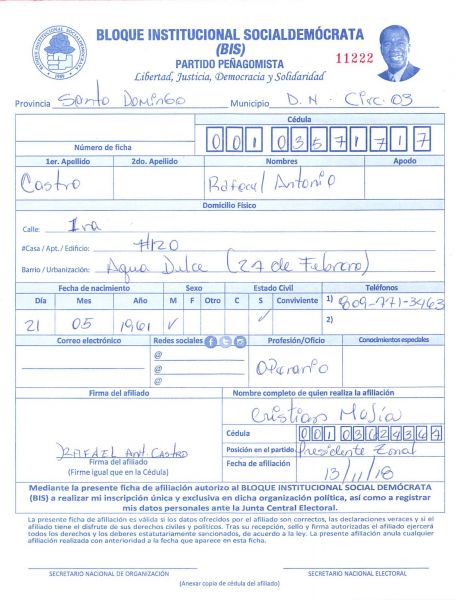 BLOQUE INSTITUCIONAL SOCIALDEMÓCRATA
(BIS)
PARTIDO PEÑAGOMISTA
11222
Libertad, Justicia, Democracia y Solidaridad
Provincia Santo Domingo Municipio D.N. Circ. 03
Cédula
Número de ficha 001 0357171 7
1er. Apellido 2do. Apellido Nombres Apodo
Castro Rafael Antonio
Domicilio Físico
Calle: 1ra
#Casa / Apt. / Edificio: #120
Barrio / Urbanización: Agua Dulce (27 de Febrero)
Fecha de nacimiento Sexo Estado Civil Teléfonos
Día Mes Año M F Otro C S Conviviente 1) 809-771-3463
21 05 1961 ✓ ✓ 2)
Correo electrónico Redes sociales Profesión/Oficio Conocimientos especiales
@
@ Operario
@
Firma del afiliado Nombre completo de quien realiza la afiliación
Cristian Mejía
Cédula
RAFAEL Ant. CASTRO Posición en el partido Presidente Zonal
Firma del afiliado Fecha de afiliación 13/11/18
(Firme igual que en la Cédula)
Mediante la presente ficha de afiliación autorizo al BLOQUE INSTITUCIONAL SOCIAL DEMÓCRATA
(BIS) a realizar mi inscripción única y exclusiva en dicha organización política, así como a registrar
mis datos personales ante la Junta Central Electoral.
La presente ficha de afiliación es válida si los datos ofrecidos por el afiliado son correctos, las declaraciones veraces y si el
afiliado tiene el disfrute de sus derechos civiles y políticos. Tras su recepción, sello y firma autorizadas el afiliado ejercerá
todos los derechos y los deberes estatutariamente sancionados, de acuerdo a la ley. La presente afiliación anula cualquier
afiliación realizada con anterioridad a la fecha que aparece en esta ficha.
SECRETARIO NACIONAL DE ORGANIZACIÓN SECRETARIO NACIONAL ELECTORAL
(Anexar copia de cédula del afiliado)